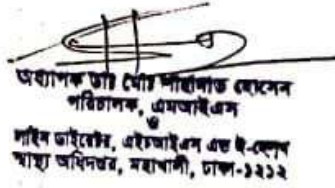 অধ্যাপক ডাঃ মোঃ শাহাদাত হোসেন
পরিচালক, এমআইএস
ও
লাইন ডাইরেক্টর, এইচআইএস এন্ড ই-হেলথ
স্বাস্থ্য অধিদপ্তর, মহাখালী, ঢাকা-১২১২